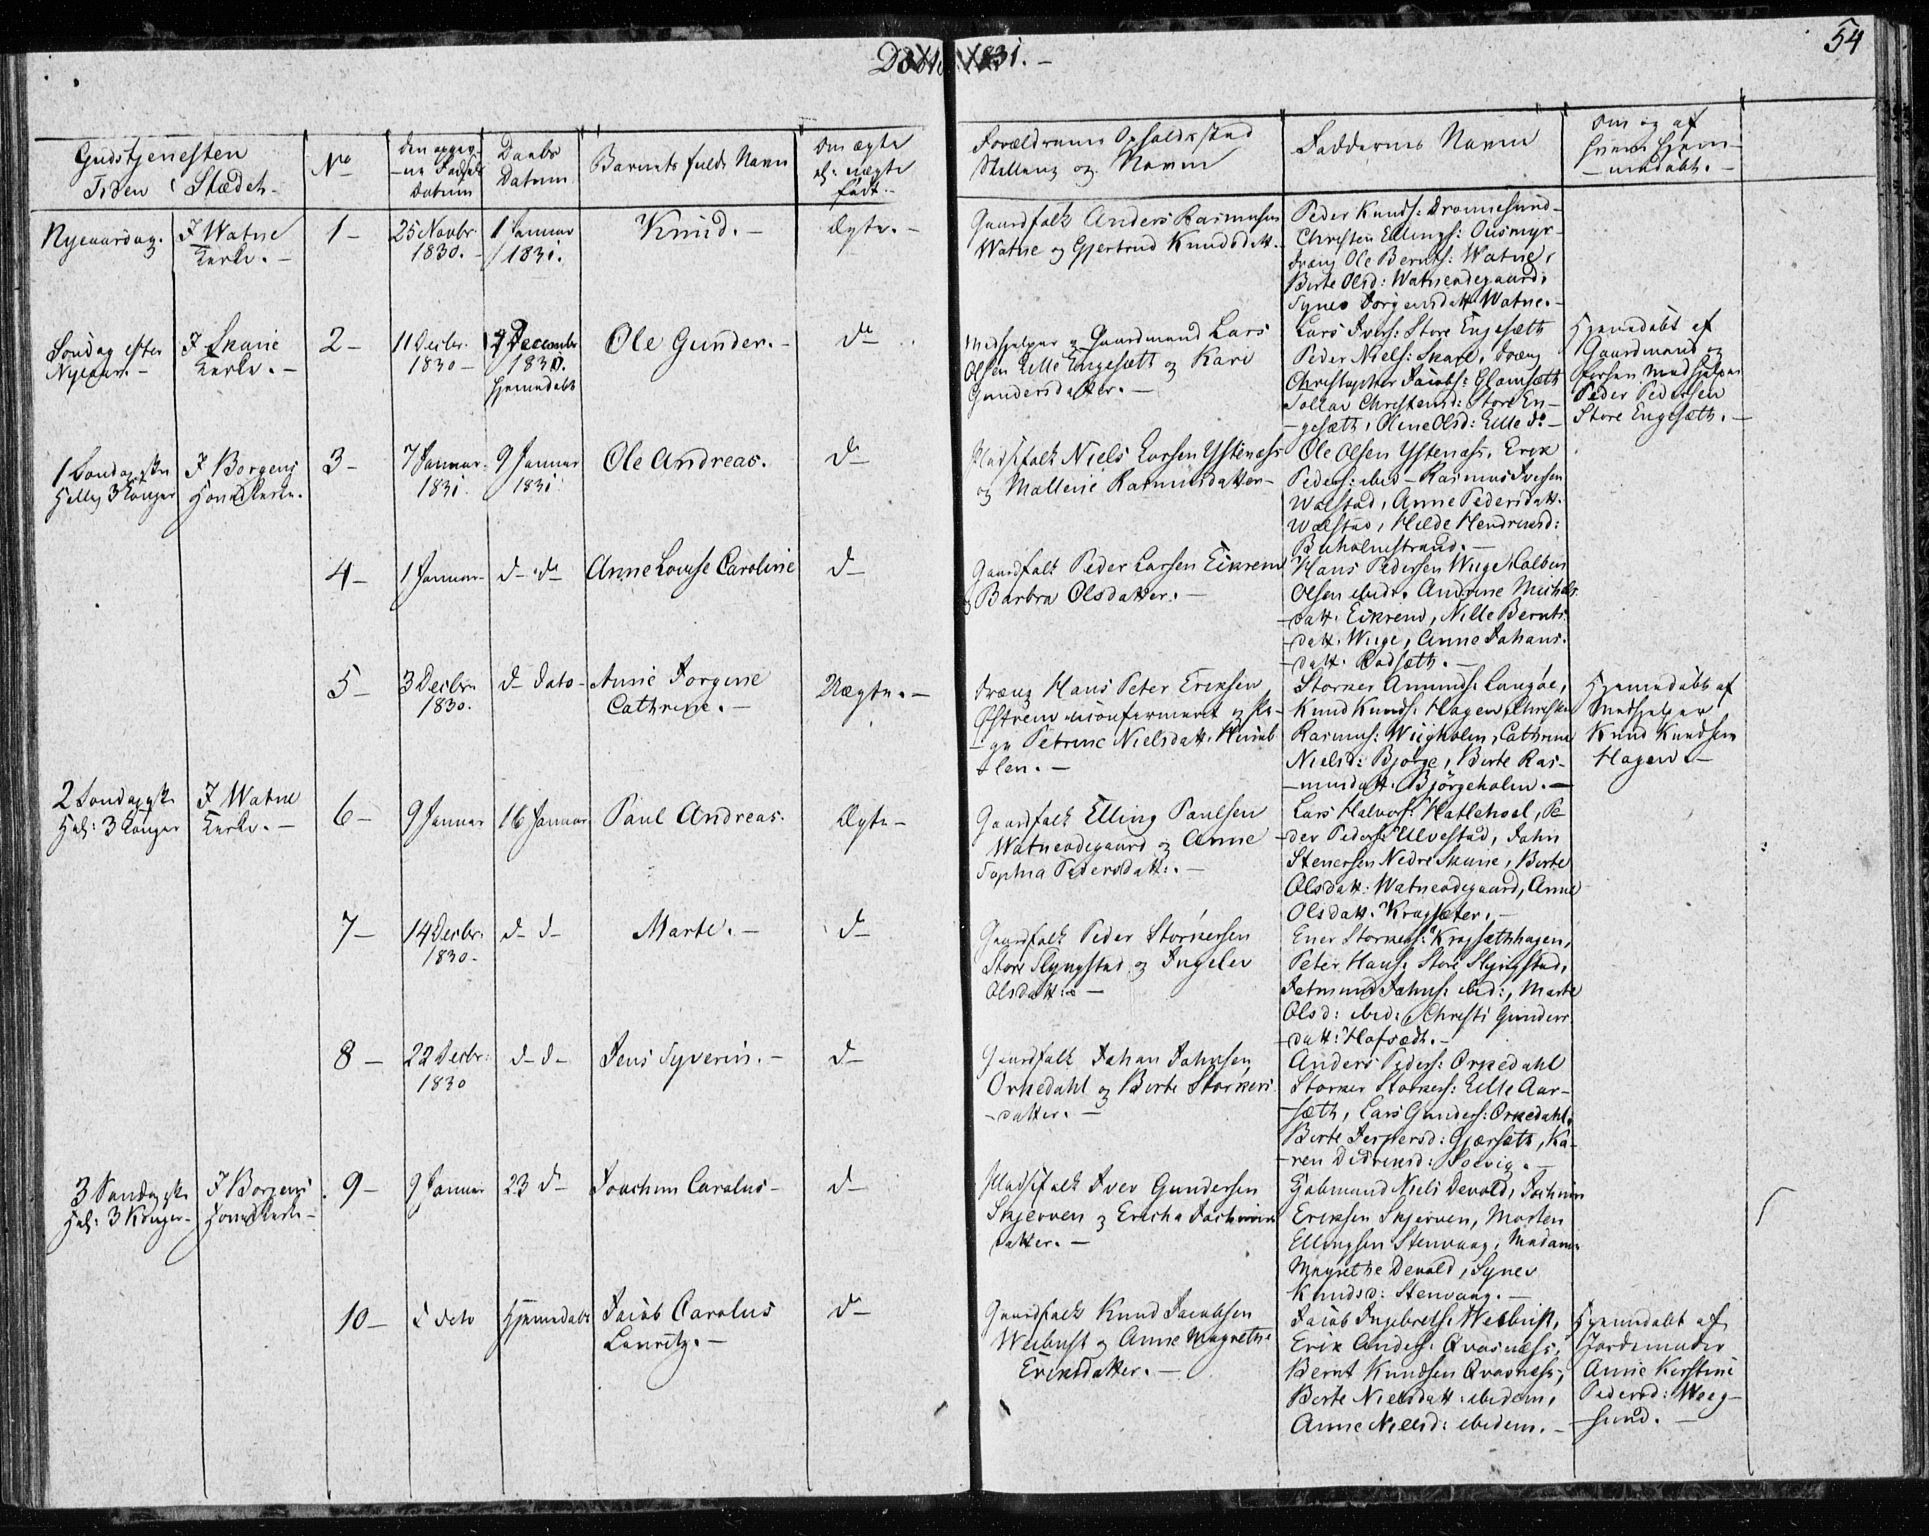 54
Døbte 1831. -
Gudstjenesten
Tiden | Stædet.
No
den opgiv-
-ne Fødsels
Datum
Daabs
Datum
Barnets fulde Navn
Om ægte
el: uægte
født.
Forældrenes Opholdsstad
Stilling og Navne
Faddernes Navne
Om og af
hvem hjem-
-medøbt. -
Nyeaarsdag.
I Watne
Kirke. -
1 -
25 Novbr.
1830. -
1 Januar
1831.
Knud. -
Ægte. -
Gaardfolk Anders Rasmusen
Watne og Gjertrud Knudsdatt.
Peder Knuds: Dronnesund-
Christen Ellings: Ousmyr-
Dreng Ole Bernts: Watne,
Berte Olsd: Watneødegaard,
Synes Jørgensdatt. Watne. -
Søndag efter
Nyeaar. -
I Skarie
Kirke. -
2 -
11 Decbr.
1830 -
December
1830.
hjemmedøbt
Ole Gunder. -
do
Medhjelper og Gaardmand Lars
Olsen Lille Engesæth og Kari
Gundersdatter. -
Lars Ivers: Store Engesæth
Peder Niels: Skare, Dreng
Christopher Jacobs: Glomsæth
Christensd: Store En-
-gesæth, Oline Olsd: Lille do -
Hjemmedøbt af
Gaardmand og
Medhjelper
Peder Pedersen
Store Engesæth. -
1 Søndag efter
Hellig 3 Konger
I Borgens
Hovedkirke.
3 -
7 Januar.
1831.
9 Januar
1831
Ole Andreas.
do
Pladsfolk Niels Larsen Ystenæss
og Mallene Rasmusdatter -
Ole Olsen Ystenæss, Erik
Peders: ibid - Rasmus Iversen
Wolstad, Anne Pedersdatt.
Wolstad, Hilde Hendriksd:
Buholmestrand. -
4 -
1 Januar -
d - do
Anne Lovise Caroline
do
Gaardfolk Peder Larsen Eikrem
og Barbra Olsdatter. -
Hans Pedersen Wiige,
Olsen ibid. Andrine Michels
datt. Eikrem, Nille Bernts
datt. Wiige, Anne Johans
datt. Rødsæth. -
5 -
3 Decbr.
1830.
d - dato -
Anne Jorgine
Cathrine. -
Uægte. -
Dreng Hans Peter Eriksen
Østrem uconfirmeret og Pi-
-ge Petrine Nielsdatt.
-len. -
Storker Amunds: Langøe,
Knud Knuds: Hagen, Christen
Rasmus: Wiigholen, Cathrine
Nielsd: Bjørge, Berte Ras-
-musdatt. Bjørgeholm. -
Hjemmedøbt af
Medhjelper
Knud Knudsen
Hagen. -
2 Søndag efter
Hel: 3 Konger
I Watne
Kirke. -
6 -
9 Januar
16 Januar
Paul Andreas.
Ægte -
Gaardfolk Elling Paulsen
Watneødegaard og Anne
Sophia Petersdatt: -
Lars Halvors: Hatlehoel, Pe-
-der Peders: Ulvestad, John
Stenersen Nedre Skarie, Berte
Olsdatt: Watneødegaard, Anne
Olsdatt: Kragsæter. -
7 -
14 Decbr.
1830 -
d - d -
Marte. -
do
Gaardfolk Peder Storkersen
Store Slyngstad og Ingelev
Olsdatt: -
Ener Storkers: Kragsæthhagen,
Peter Hans: Store Slyngstad,
Jetmund Johns: ibid:, Marte
Olsd: ibid: Christi Gunders
datt: Hofsædt. -
8 -
22 Decbr.
1830
d - d -
Jens Syverin. -
do
Gaardfolk Johan Johnsen
Orkedahl og Berte Storkers
-datter. -
Anders Peders: Orkedahl
Storker Storkers: Lille Aar-
-sæth, Lars Gunders: Orkedahl,
Berte Jespersd: Gjærsæth, Ka-
-ren Didriksd: Solvig. -
3 Søndag efter
Hel: 3 Konger -
I Borgens
Hovedkirke -
9 -
9 Januar
23 do
Joachim Carolus -
do
Pladsfolk Iver Gundersen
Skjerven og Ericha Jochims
datter. -
Kjøbmand Niels Devold, Jochim
Eriksen Skjerven, Morten
Ellingsen Stenvaag, Madame
Magrethe Devold, Synev
Knudsd: Stenvaag. -
10 -
dato
Hjemmedøbt
Jacob Carolus
Lauritz. -
do
Gaardfolk Knud Jacobsen
Weibust og Anne Magrethe
Eriksdatter. -
Jacob Ingebrets: Weibust,
Erik Anders: Qvasnæss,
Bernt Knudsen Qvasnæss,
Berte Nielsdatt: ibidem,
Anne Nielsd: ibidem. -
Hjemmedøbt af
Jordemoder
Anne Kirstine
Pedersd: Weeg-
-sund. -